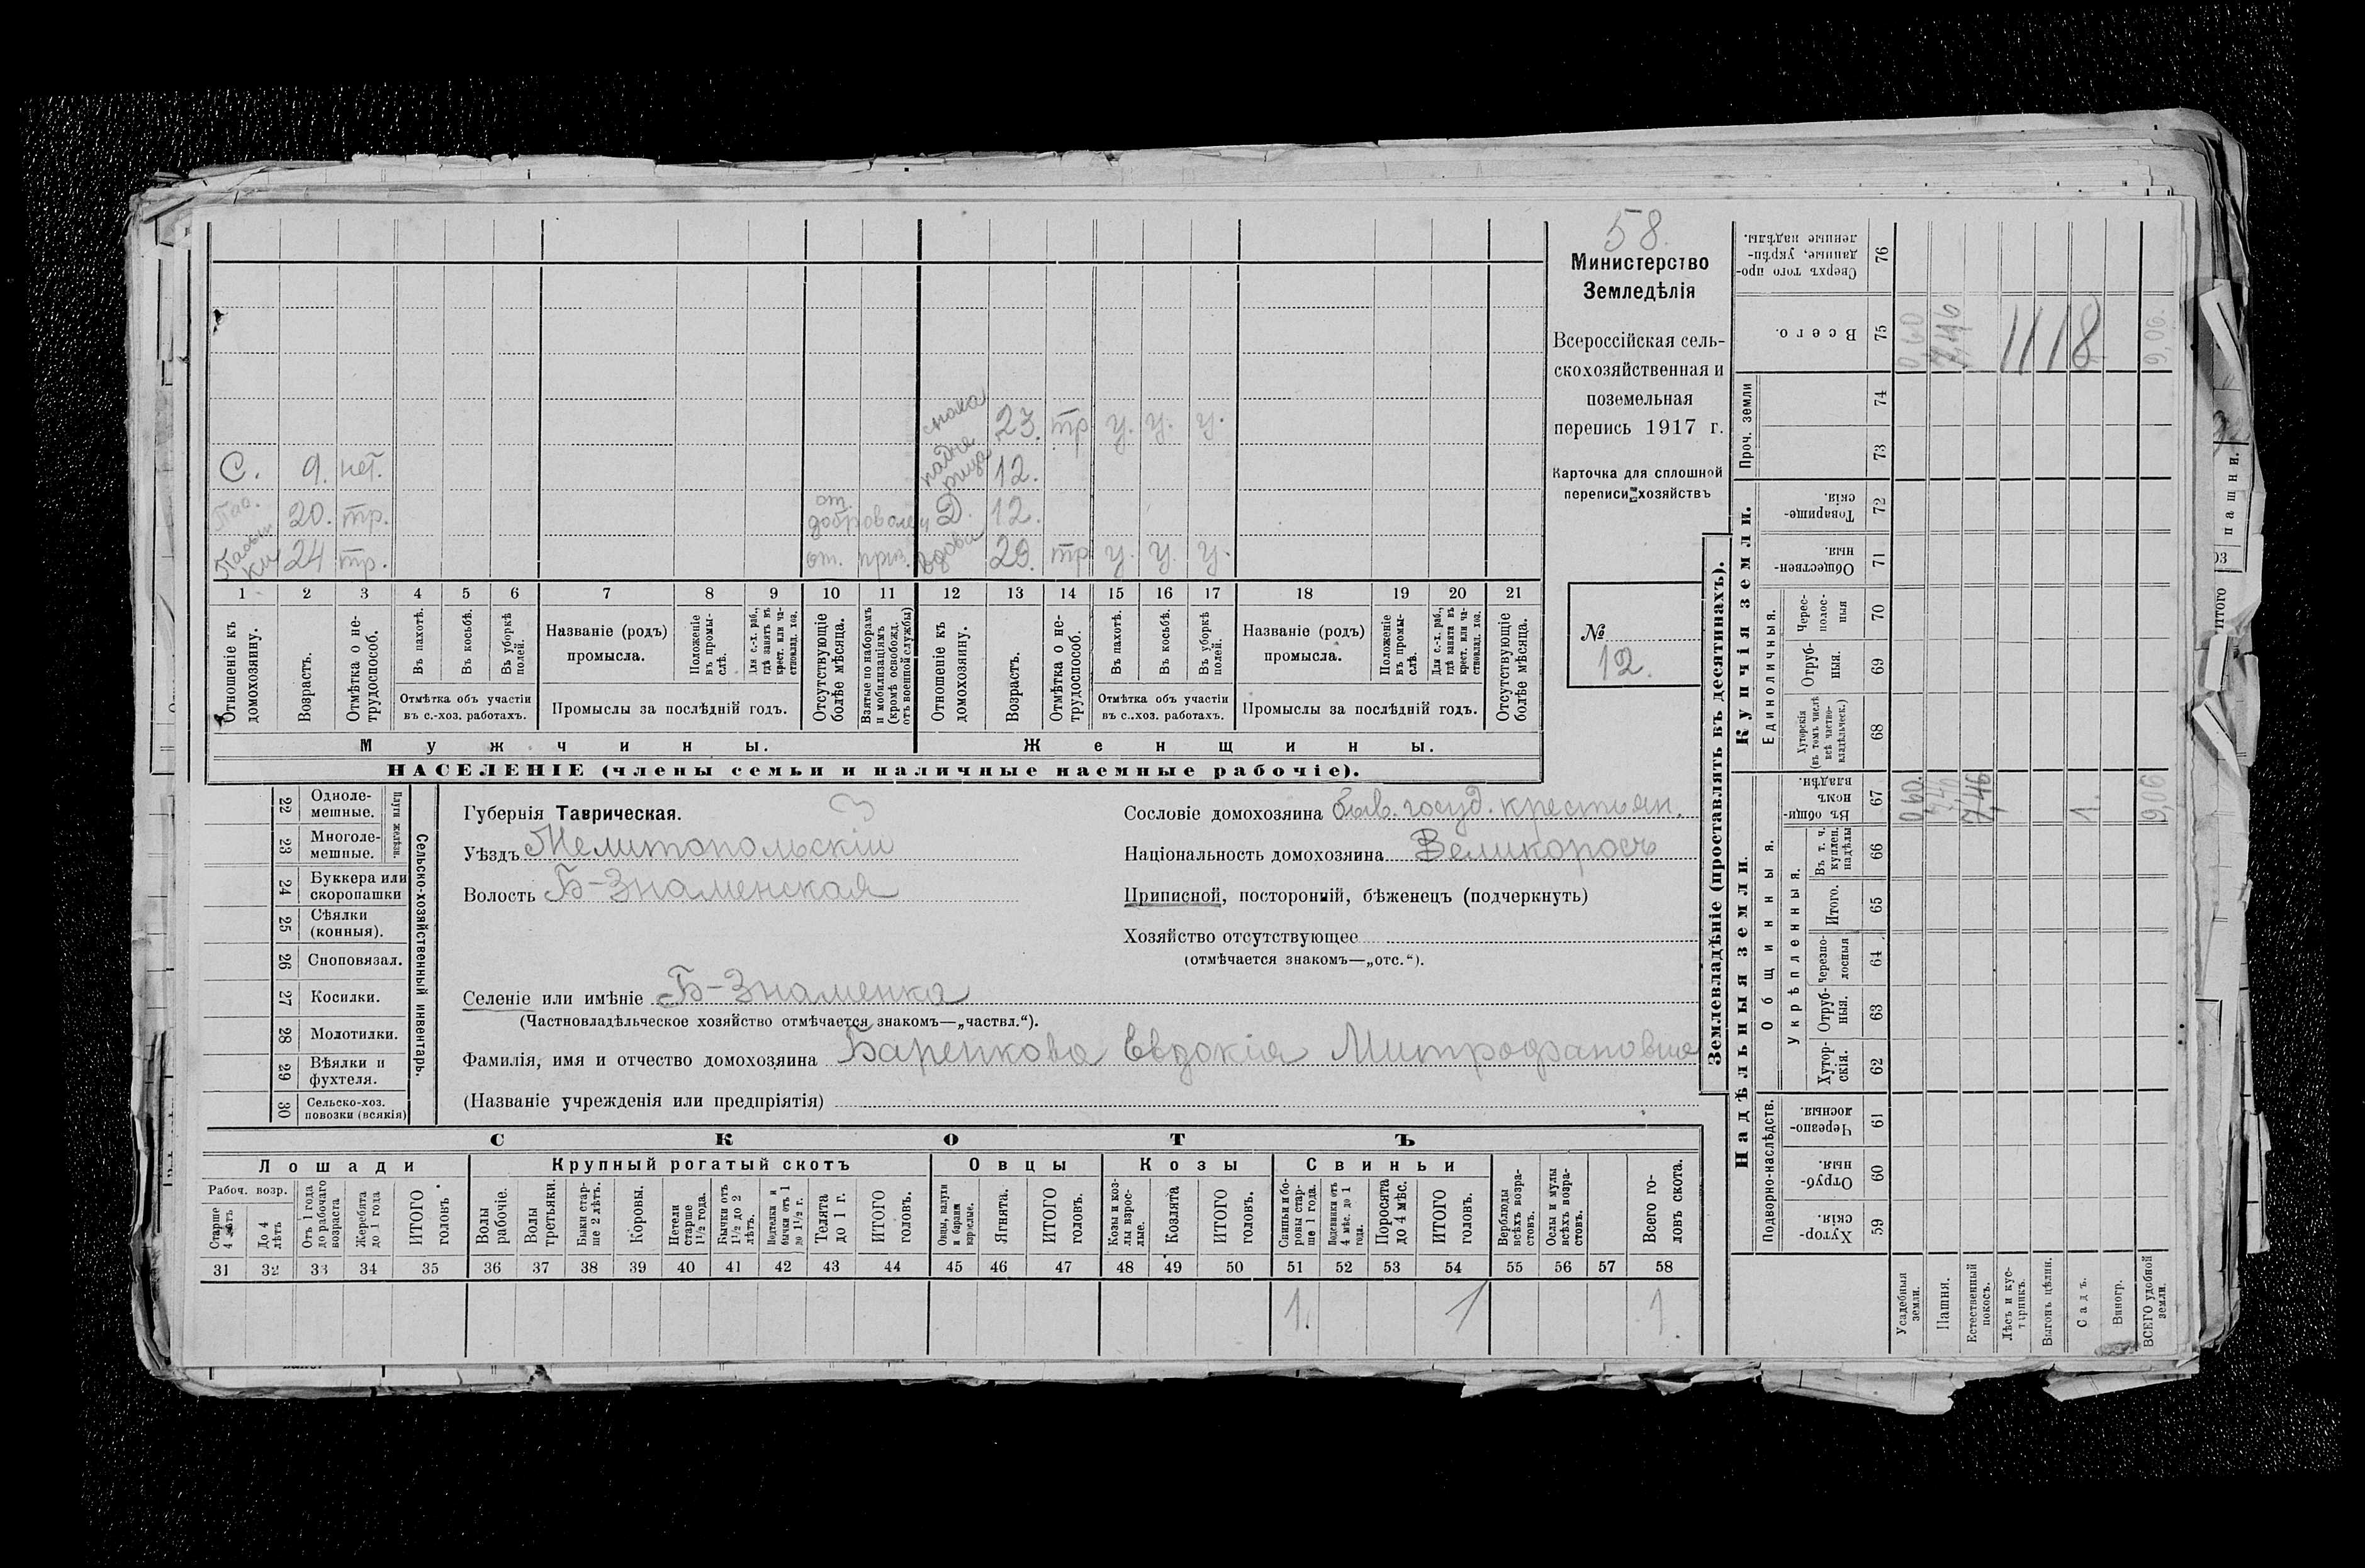 58.
Министерство
Земледѣлія
Всероссійская сель-
скохозяйственная и
поземельная
перепись 1917 г.
Карточка для сплошной
переписи хозяйствъ
№
12.
23. тр. у. у. у.
С. 9. нет. 12.
20. тр. от. Д. 12.
24 тр. от. приз. вдова 29. тр у. у. у.
1 2 3 4 5 6 7 8 9 10 11 12 13 14 15 16 17 18 19 20 21
Отношеніе къ домохозяину.
Возрастъ.
Отмѣтка о не-трудоспособ.
Въ пахотѣ.
Въ косьбѣ.
Въ уборкѣ полей.
Отмѣтка объ участіи
въ с.-хоз. работахъ.
Названіе (родъ)
промысла.
Положеніе въ промы-слѣ.
Для с.-х. раб., гдѣ занятъ въ крест. или ча-ствовлад. хоз.
Промыслы за послѣдній годъ.
Отсутствующіе болѣе мѣсяца.
Взятые по наборамъ и мобилизаціямъ (кромѣ освобожд. отъ военной службы)
Отношеніе къ домохозяину.
Возрастъ.
Отмѣтка о не-трудоспособ.
Въ пахотѣ.
Въ косьбѣ.
Въ уборкѣ полей.
Отмѣтка объ участіи
въ с.-хоз. работахъ.
Названіе (родъ)
промысла.
Положеніе въ промы-слѣ.
Для с.-х. раб., гдѣ занята въ крест. или ча-ствовлад. хоз.
Промыслы за послѣдній годъ.
Отсутствующіе болѣе мѣсяца.
Мужчины.
Женщины.
НАСЕЛЕНІЕ (члены семьи и наличные наемные рабочіе).
22 Одноле-мешные.
23 Многоле-мешные.
Плуги желѣзн.
24 Буккера или скоропашки
25 Сѣялки (конныя).
26 Сноповязал.
27 Косилки.
28 Молотилки.
29 Вѣялки и фухтеля.
30 Сельско-хоз. повозки (всякія)
Сельско-хозяйственный инвентарь.
Губернія Таврическая.
3
Уѣздъ Мелитопольскій
Волость Б-Знаменская
Сословіе домохозяина быв. госуд. крестьян.
Національность домохозяина Великоросъ
Приписной, посторонній, бѣженецъ (подчеркнуть)
Хозяйство отсутствующее
(отмѣчается знакомъ—„отс.“).
Селеніе или имѣніе Б-Знаменка
(Частновладѣльческое хозяйство отмѣчается знакомъ—„частвл.“).
Фамилія, имя и отчество домохозяина Баренкова Евдокія Митрофановна
(Названіе учрежденія или предпріятія)
СКОТЪ
Лошади
Крупный рогатый скотъ
Овцы
Козы
Свиньи
Рабоч. возр.
Старше 4 лѣтъ
До 4 лѣтъ
Отъ 1 года до рабочаго возраста
Жеребята до 1 года
ИТОГО головъ
Волы рабочіе.
Волы третьяки.
Быки стар-ше 2 лѣтъ.
Коровы.
Нетели старше 1½ года.
Бычки отъ 1½ до 2 лѣтъ.
Нетелки и бычки отъ 1 до 1½ г.
Телята до 1 г.
ИТОГО головъ.
Овцы, валухи и бараны взрослые.
Ягнята.
ИТОГО головъ.
Козы и коз-лы взрос-лые.
Козлята
ИТОГО головъ.
Свиньи и бо-ровы стар-ше 1 года.
Подсвинки отъ 4 мѣс. до 1 года.
Поросята до 4 мѣс.
ИТОГО головъ.
Верблюды всѣхъ возра-стовъ.
Ослы и мулы всѣхъ возра-стовъ.
Всего го-ловъ скота.
31 32 33 34 35 36 37 38 39 40 41 42 43 44 45 46 47 48 49 50 51 52 53 54 55 56 57 58
1. 1 1.
Землевладѣніе (проставлять въ десятинахъ).
Надѣльныя земли.
Купчія земли.
Проч. земли
Подворно-наслѣдств.
Общинныя.
Укрѣпленныя.
Единоличныя.
Хутор-скія. 59
Отруб-ныя. 60
Черезпо-лосныя. 61
Хутор-скія. 62
Отруб-ныя. 63
Черезпо-лосныя 64
Итого. 65
Въ т. ч. куплен. надѣлы 66
Въ общин-номъ владѣн. 67
Хуторскія (въ томъ числѣ всѣ частно-владѣльческ.) 68
Отруб-ныя. 69
Черес-полос-ныя 70
Обществен-ныя. 71
Товарище-скія. 72
73
74
Всего. 75
Сверхъ того про-данные, укрѣп-ленные надѣлы. 76
Усадебныя земли.
Пашня.
Естественный покосъ.
Лѣсъ и кус-тарникъ.
Выгонъ цѣлин.
Садъ.
Виногр.
ВСЕГО удобной земли.
0,60. 7,46 1. 9,06
0,60 7,46 9,06.